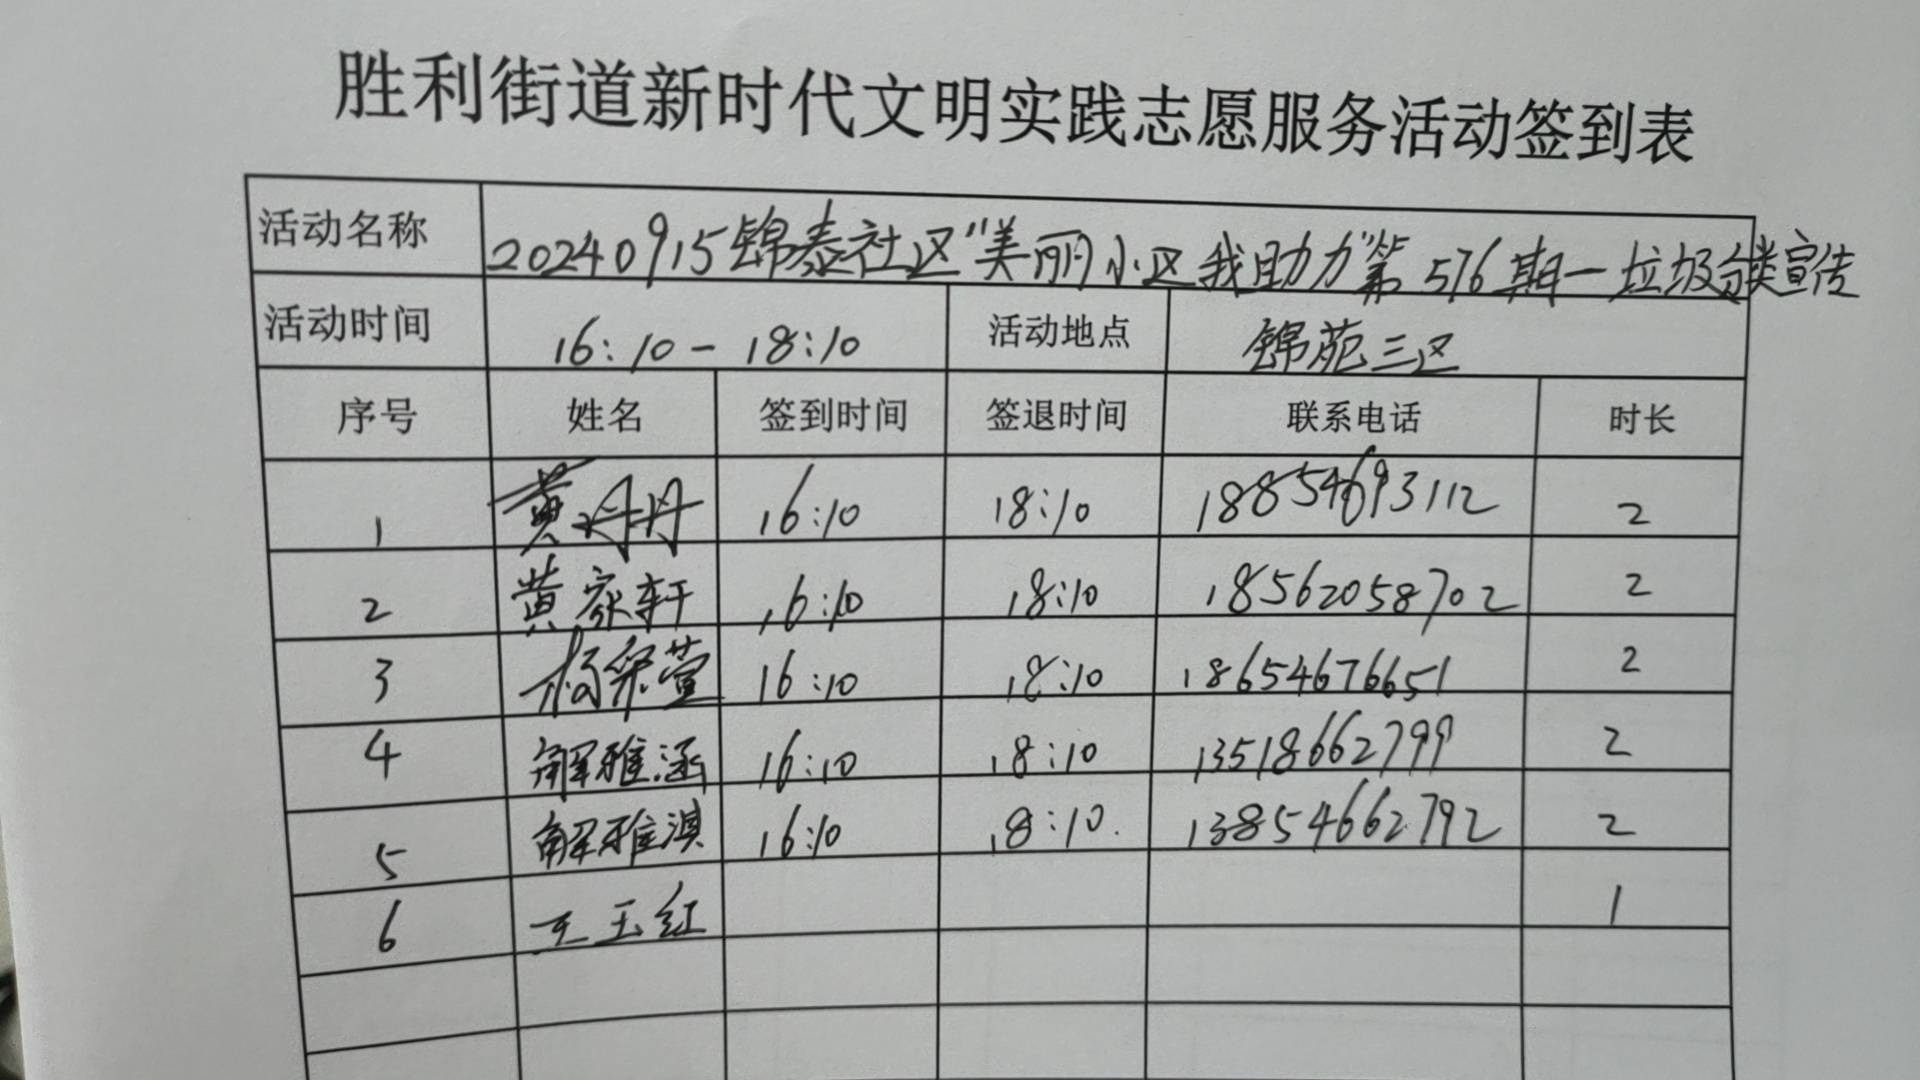 胜利街道新时代文明实践志愿服务活动签到表
活动名称 20240915锦泰社区“美丽小区我助力”第576期一垃圾分类宣传
活动时间 16:10-18:10 活动地点 锦苑三区
序号 姓名 签到时间 签退时间 联系电话 时长
1 黄丹丹 16:10 18:10 18854693112 2
2 黄家轩 16:10 18:10 18562058702 2
3 杨梁萱 16:10 18:10 18654676651 2
4 解雅涵 16:10 18:10 13518662799 2
5 解雅淇 16:10 18:10. 13854662792 2
6 王玉红 1